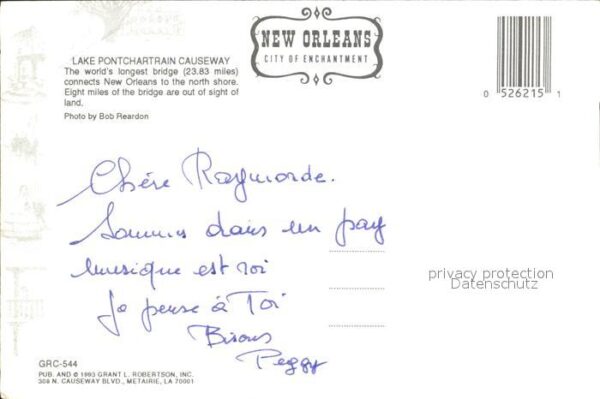 LAKE PONTCHARTRAIN CAUSEWAY
The world's longest bridge (23.83 miles)
connects New Orleans to the north shore.
Eight miles of the bridge are out of sight of
land.
Photo by Bob Reardon
NEW ORLEANS
CITY OF ENCHANTMENT
0 526215 1
Chère Raymonde.
Sommes dans un pay
musique est roi
Je pense à Toi
Bisous
Peggy
privacy protection
Datenschutz
GRC-544
PUB. AND © 1993 GRANT L. ROBERTSON, INC.
308 N. CAUSEWAY BLVD., METAIRIE, LA 70001